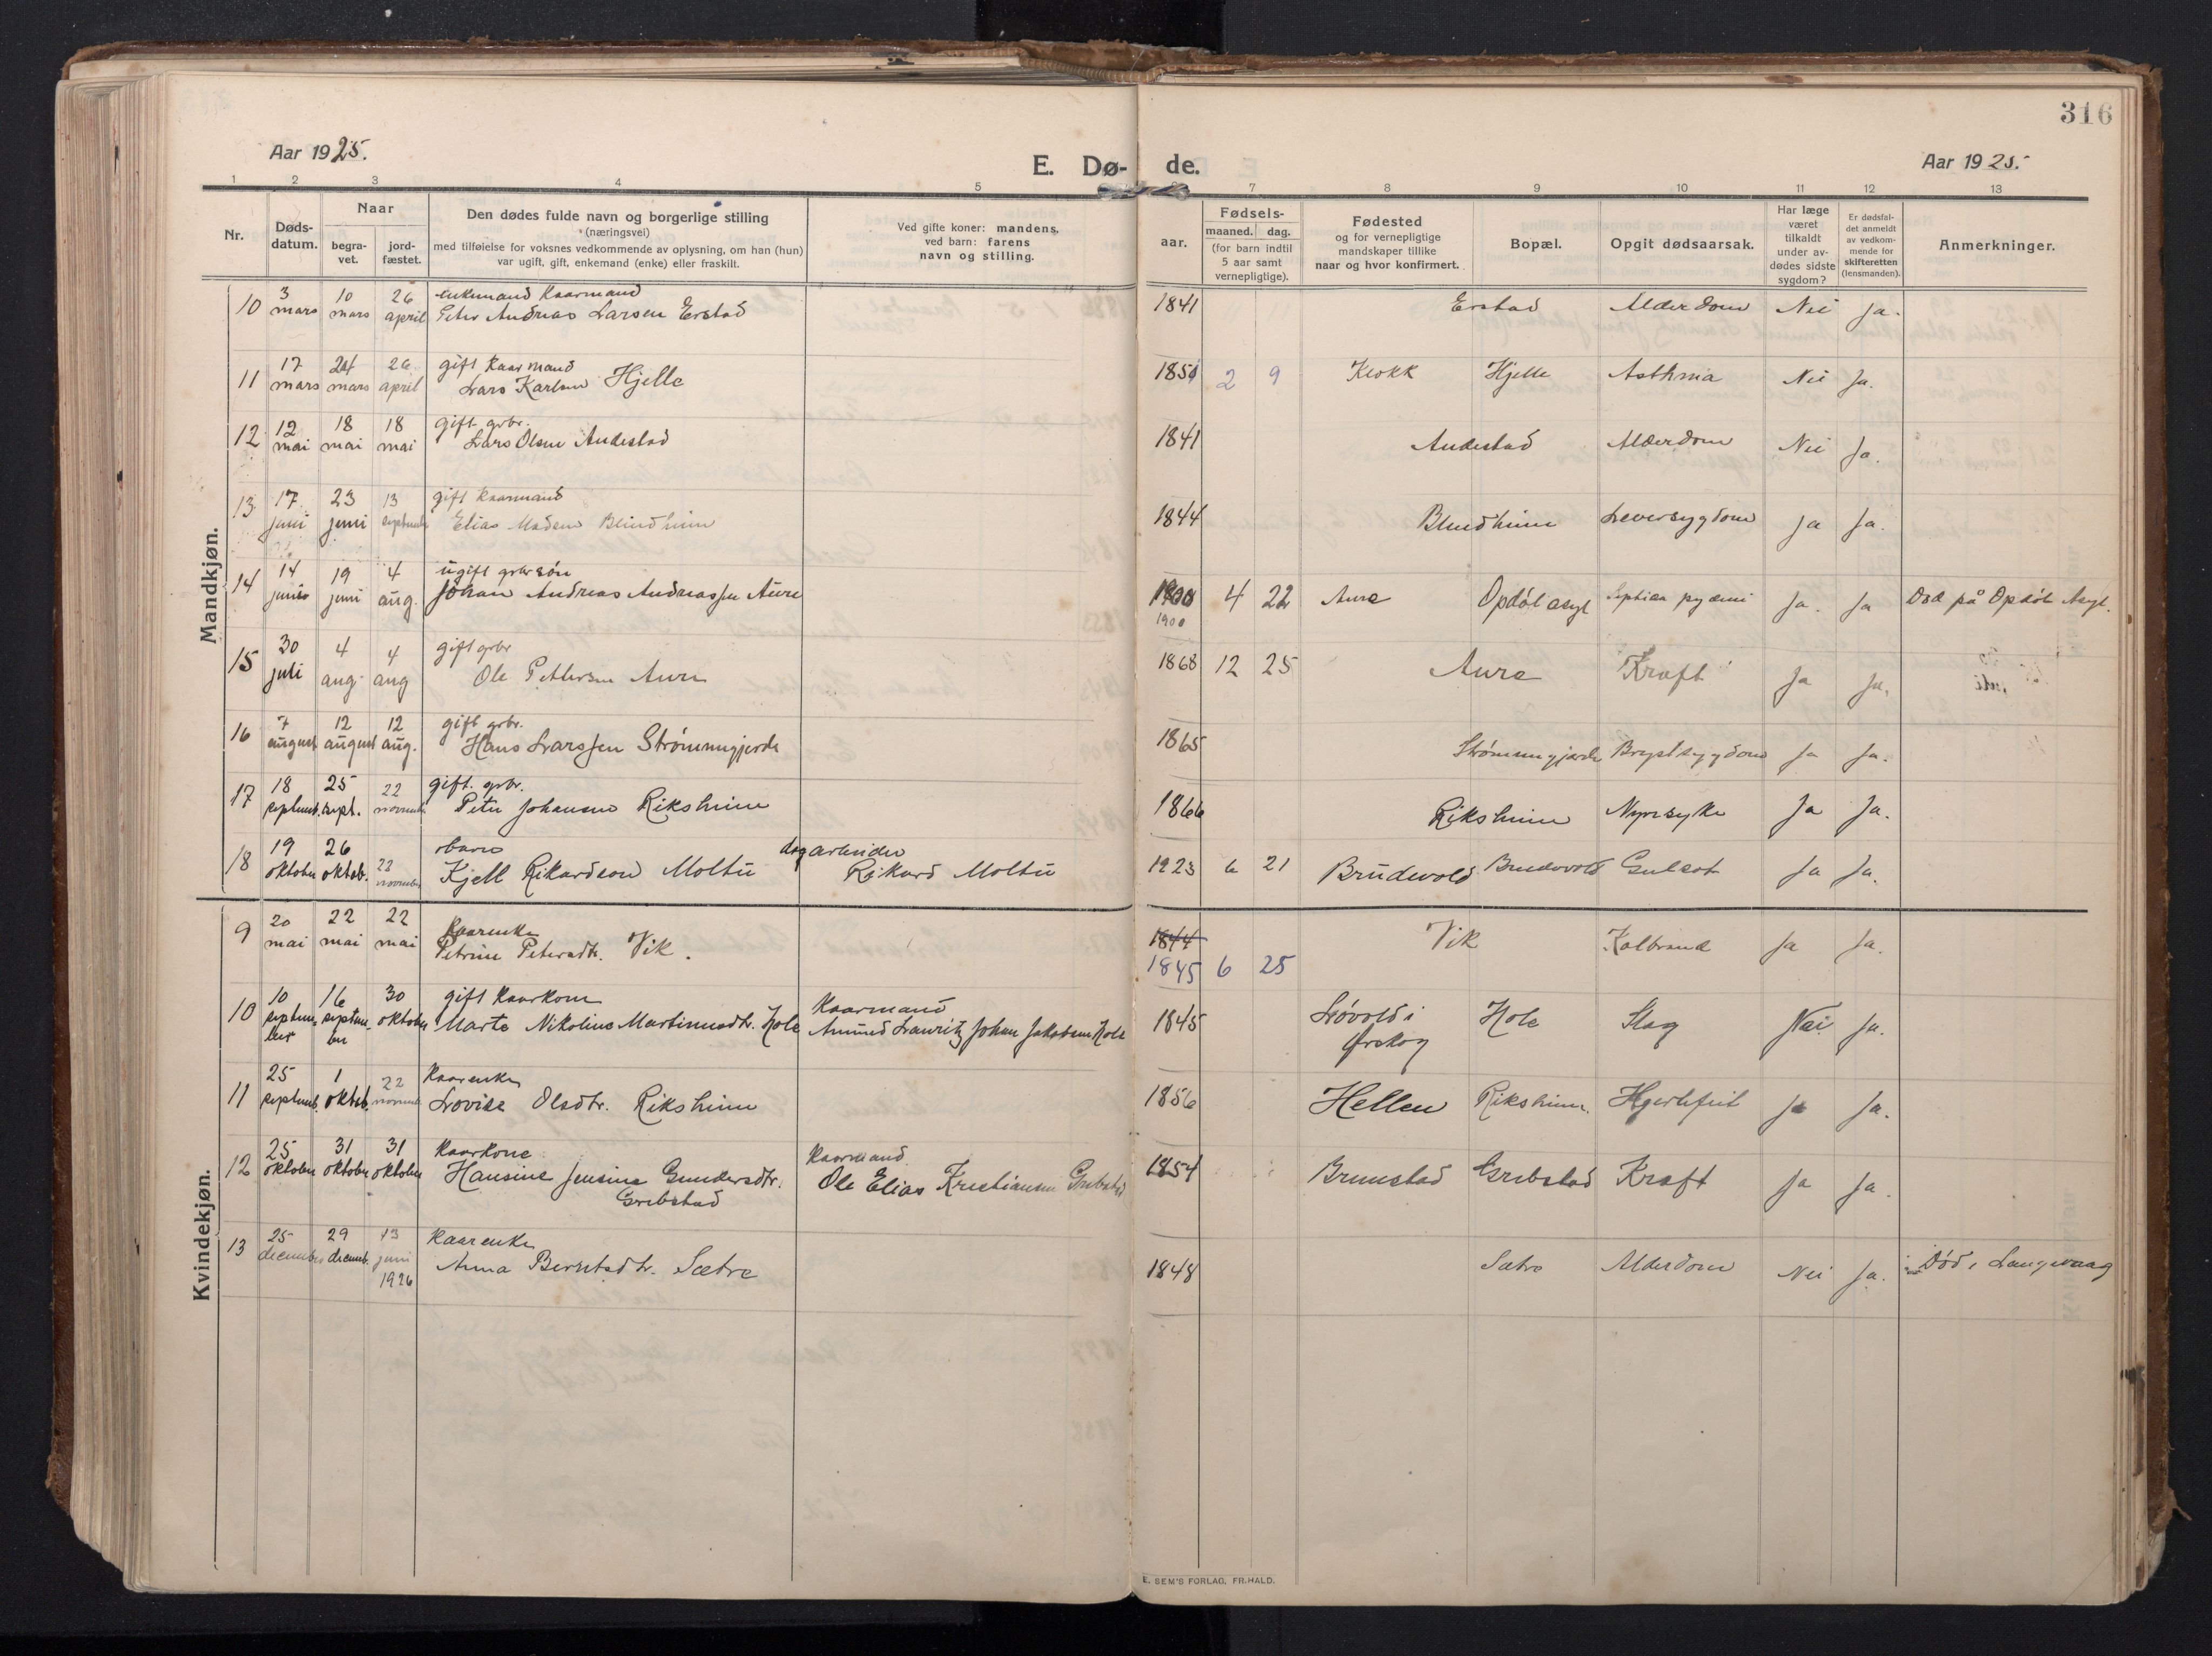 316
Aar 1925.
E. Dø- de.
Aar 1925.
1 2 3 4 5 7 8 9 10 11 12 13
Nr.
Døds-
datum.
Naar
begra-
vet.
jord-
fæstet.
Den dødes fulde navn og borgerlige stilling
(næringsvei)
med tilføielse for voksnes vedkommende av oplysning, om han (hun)
var ugift, gift, enkemand (enke) eller fraskilt.
Ved gifte koner: mandens,
ved barn: farens
navn og stilling.
aar.
Fødsels-
maaned. dag.
(for barn indtil
5 aar samt
vernepligtige).
Fødested
og for vernepligtige
mandskaper tillike
naar og hvor konfirmert.
Bopæl.
Opgit dødsaarsak.
Har læge
været
tilkaldt
under av-
dødes sidste
sygdom?
Er dødsfal-
det anmeldt
av vedkom-
mende for
skifteretten
(lensmanden).
Anmerkninger.
Mandkjøn.
3 10 26 enkemand kaarmand
10 mars mars april Peter Andreas Larsen Erstad 1841 Erstad Alderdom Nei Ja.
17 24 26 gift kaarmand
11 mars mars april Lars Karlsen Hjelle 1851 2 9 Klokk Hjelle Asthma Nei Ja.
12 18 18 gift grbr.
12 mai mai mai Lars Olsen Andestad 1841 Andestad Alderdom Nei Ja.
17 23 13 gift kaarmand
13 juni juni septemb Elias Madsen Blindheim 1844 Blindheim Leversygdom Ja Ja.
14 19 4 ugift grbr søn
14 juni juni aug. Johan Andreas Andreassen Aure 1900 4 22 Aure Opdøl asyl pyæmi Ja. Ja Død på Opdøl Asyl.
1900
30 4 4 gift grbr
15 juli aug. aug Ole Pettersen Aure 1868 12 25 Aure Kræft Ja Ja.
7 12 12 gift grbr.
16 august august aug. Hans Larssen Strømmegjerde 1865 Strømmegjerde Brystsygdom Ja Ja.
18 25 22 gift. grbr.
17 septemb. sept. novemb. Peter Johansen Riksheim 1866 Riksheim Nyresyke Ja Ja.
19 26 22 barn dagarbeider
18 oktober oktob. november Kjell Rikardson Moltu Rikard Moltu 1923 6 21 Brudevold Brudevold Gulsot Ja Ja.
Kvindekjøn.
20 22 22 Kaarenke
9 mai mai mai Petrine Petersdtr. Vik. 1844 Vik Kolbrand Ja Ja.
1845 6 25
10 16 30 gift kaarkone Kaarmand
10 septem- septem- oktober Marte Nikoline Martinusdtr. Hole Amund Lauritz Johan Jakobsen Hole 1845 Løvold i Hole Slag Nei Ja.
ber ber Ørskog
25 1 22 Kaarenke
11 septemb. oktob. novemb Lovise Olsdtr. Riksheim 1856 Hellen Riksheim. Hjertefeil Ja Ja.
25 31 31 Kaarkone Kaarmand
12 oktober oktober oktober Hansine Jensine Gundersdtr. Ole Elias Kristiansen Grebstad 1854 Brunstad Grebstad Kræft Ja Ja.
Grebstad
25 29 13 Kaarenke
13 december decemb. juni Anna Berntsdtr. Sætre 1848 Sætre Alderdom Nei Ja. Død i Langevaag
1926
E. SEM'S FORLAG, FR.HALD.